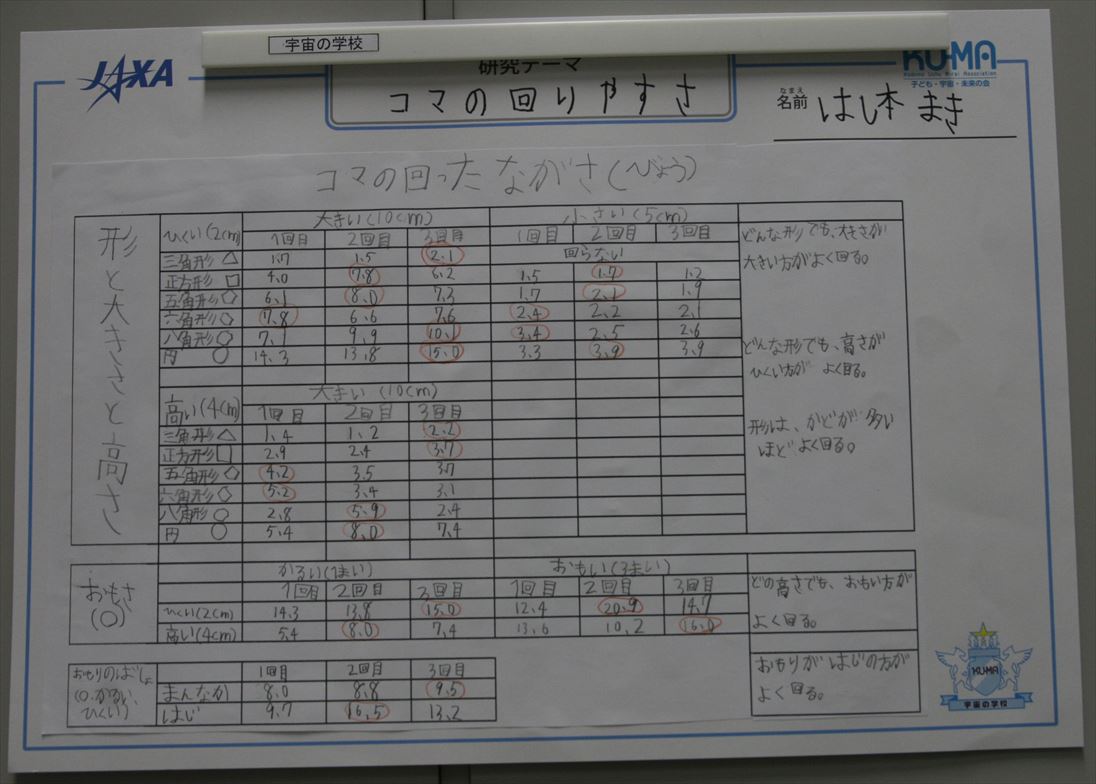 宇宙の学校
JAXA
研究テーマ
コマの回りやすさ
KU-MA
子ども・宇宙・未来の会
なまえ
名前 はし本 まき
コマの回ったながさ(びょう)
形と大きさと高さ
ひくい(2cm) 大きい(10cm) 小さい(5cm)
1回目 2回目 3回目 1回目 2回目 3回目
三角形△ 1.7 1.5 2.1 回らない
正方形□ 4.0 7.8 6.2 1.5 1.7 1.2
五角形 6.1 8.0 7.3 1.7 2.1 1.9
六角形 7.8 6.6 7.6 2.4 2.2 2.1
八角形 7.1 9.9 10.1 3.4 2.5 2.6
円○ 14.3 13.8 15.0 3.3 3.9 3.9
どんな形でも、大きさが
大きい方がよく回る。
どんな形でも、高さが
ひくい方が よく回る。
形は、かどが多い
ほどよく回る。
高い(4cm) 大きい(10cm)
1回目 2回目 3回目
三角形△ 1.4 1.2 2.2
正方形□ 2.9 2.4 3.7
五角形 4.2 3.5 3.7
六角形 5.2 3.4 3.1
八角形 2.8 5.9 2.4
円○ 5.4 8.0 7.4
おもさ
(○)
かるい(1まい) おもい(3まい)
1回目 2回目 3回目 1回目 2回目 3回目
ひくい(2cm) 14.3 13.8 15.0 12.4 20.9 14.7
高い(4cm) 5.4 8.0 7.4 13.6 10.2 16.0
どの高さでも、おもい方が
よく回る。
おもりのばしょ
(○.かるい、
ひくい)
1回目 2回目 3回目
まんなか 8.0 8.8 9.5
はじ 9.7 16.5 13.2
おもりがはじの方が
よく回る。
KUMA
宇宙の学校